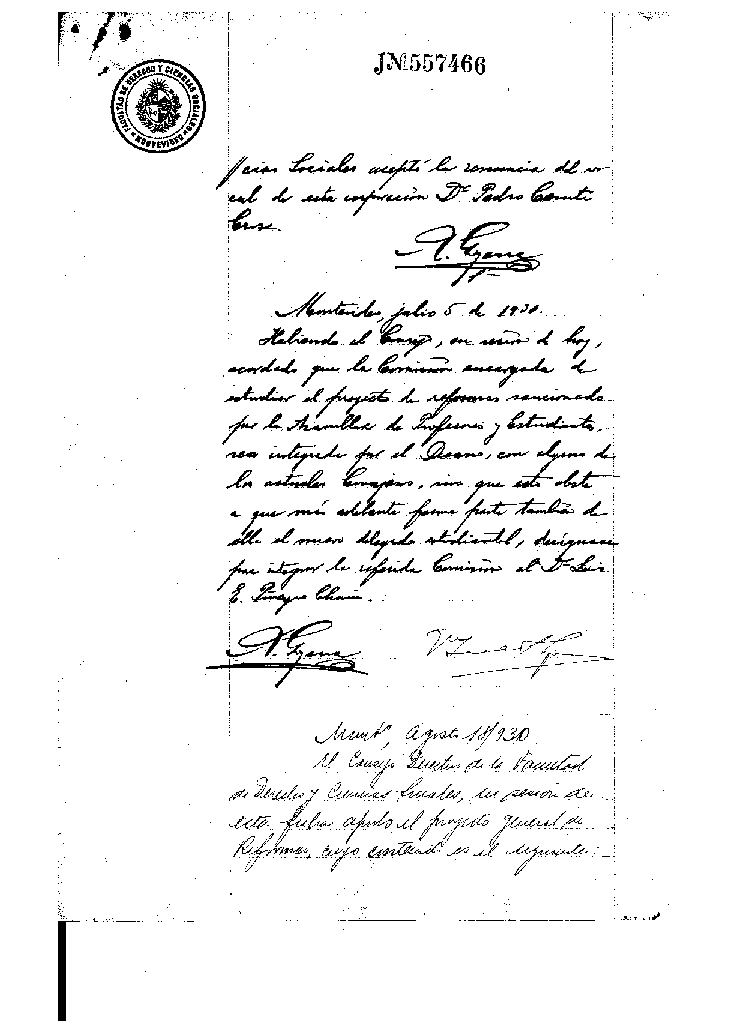 JNº557466
FACULTAD DE DERECHO Y CIENCIAS SOCIALES
/cias Sociales aceptó la renuncia del vo-
cal de esta corporación Dr. Pedro
A.
Montevideo, julio 5 de 1930.
Habiendo el Consejo, en sesión de hoy,
acordado que la Comisión encargada de
estudiar el proyecto de reformas sancionado
por la Asamblea de Profesores y Estudiantes,
sea integrada por el Decano, con alguno de
los actuales Consejeros, sin que esto obste
a que más adelante forme parte también de
ella el nuevo delegado estudiantil, desígnase
para integrar la referida Comisión al Dr. Luis
E. Piñeyro Chain.
A.
Montº, Agosto 18/930
El Consejo Directivo de la Facultad
de Derecho y Ciencias Sociales, en sesión de
esta fecha aprobó el proyecto general de
Reformas, cuyo contenido es el siguiente: